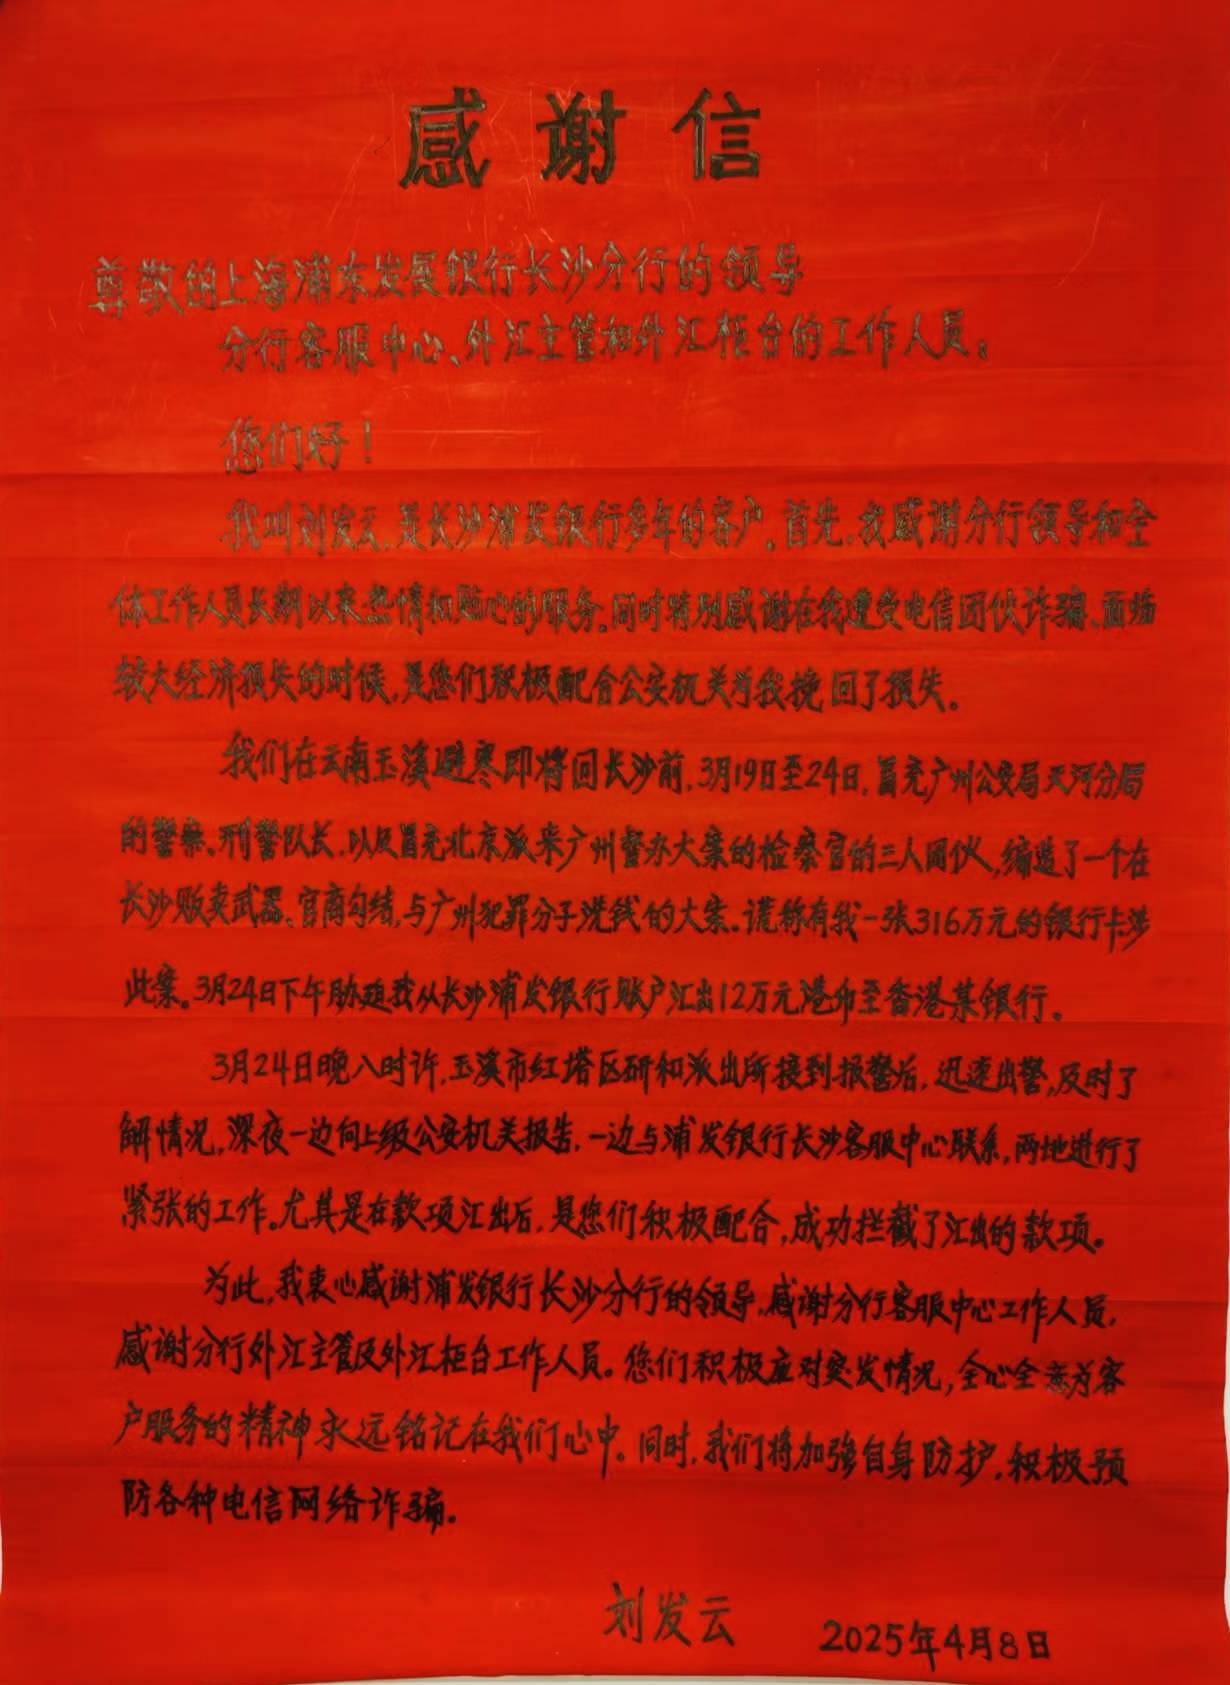 感谢信
尊敬的上海浦东发展银行长沙分行的领导
分行客服中心、外汇主管和外汇柜台的工作人员：
您们好！
我叫刘发云，是长沙浦发银行多年的客户。首先，我感谢分行领导和全
体工作人员长期以来热情和贴心的服务。同时特别感谢在我遭受电信团伙诈骗、面临
较大经济损失的时候，是您们积极配合公安机关为我挽回了损失。
我们在云南玉溪避寒即将回长沙前，3月19日至24日，冒充广州公安局天河分局
的警察、刑警队长、以及冒充北京派来广州督办大案的检察官的三人团伙，编造了一个在
长沙贩卖武器、官商勾结，与广州犯罪分子洗钱的大案。谎称有我一张316万元的银行卡涉
此案。3月24日下午胁迫我从长沙浦发银行账户汇出12万元港币至香港某银行。
3月24日晚八时许，玉溪市红塔区研和派出所接到报警后，迅速出警，及时了
解情况，深夜一边向上级公安机关报告，一边与浦发银行长沙客服中心联系，两地进行了
紧张的工作。尤其是在款项汇出后，是您们积极配合，成功拦截了汇出的款项。
为此，我衷心感谢浦发银行长沙分行的领导，感谢分行客服中心工作人员，
感谢分行外汇主管及外汇柜台工作人员。您们积极应对突发情况，全心全意为客
户服务的精神永远铭记在我们心中。同时，我们将加强自身防护，积极预
防各种电信网络诈骗。
刘发云 2025年4月8日